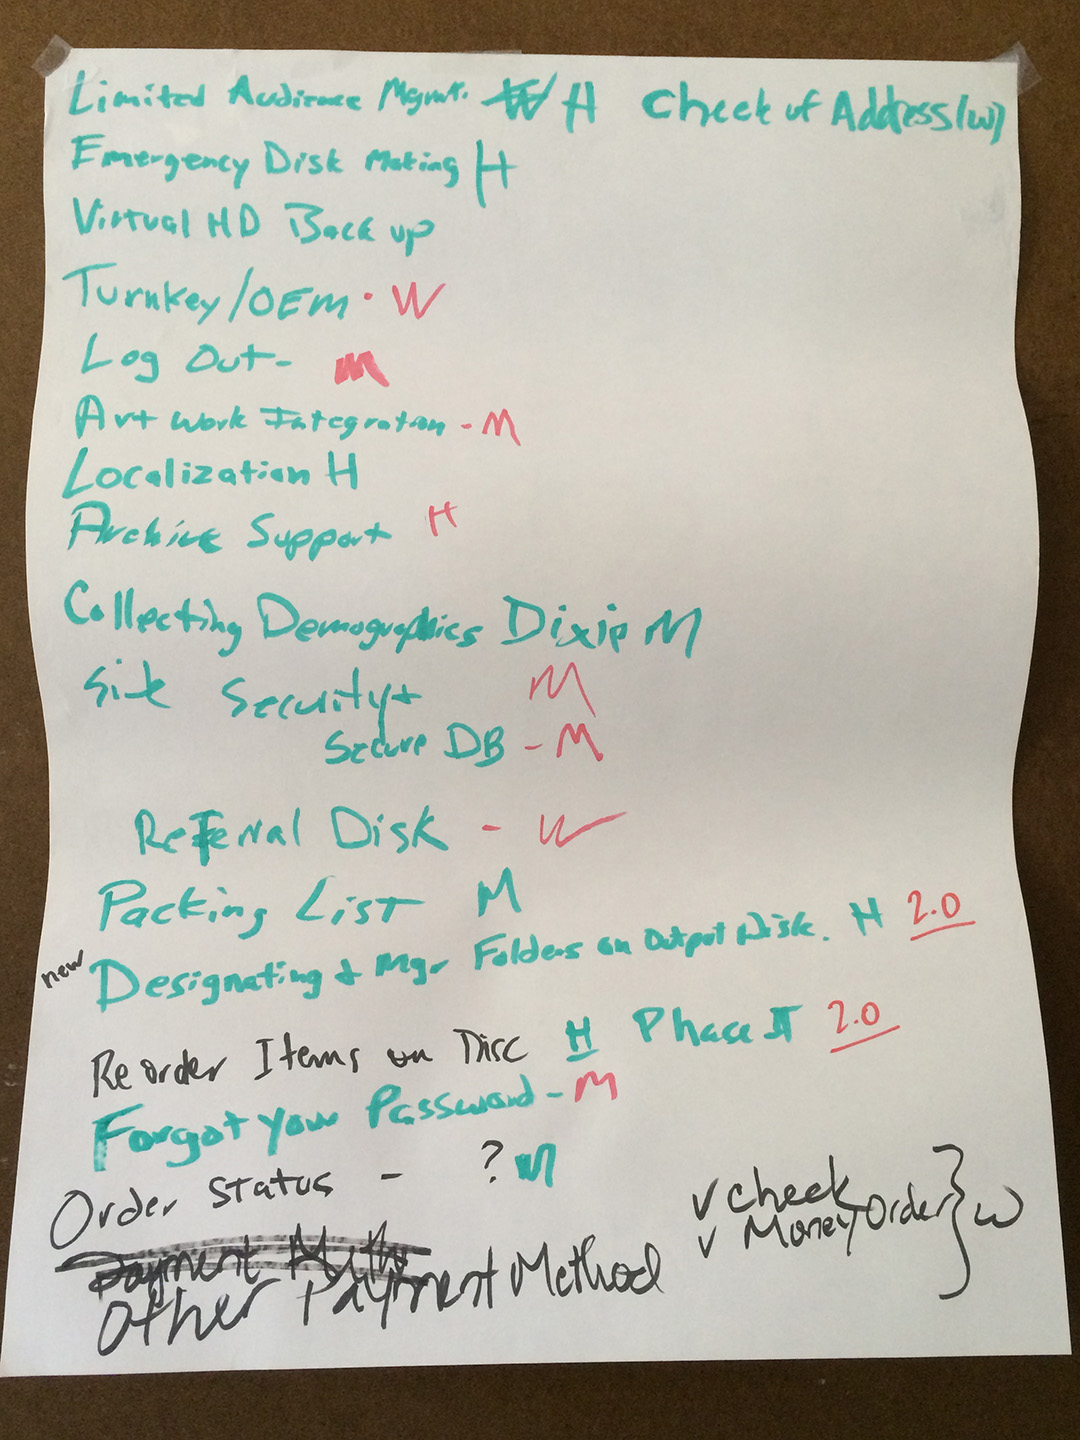 Limited Audience Mgmt. W H Check of Address (W)
Emergency Disk Making H
Virtual HD Back up
Turnkey/OEM · W
Log Out - M
Art work Integration - M
Localization H
Archive Support H
Collecting Demographics Dixie M
Site Security + M
Secure DB - M
Referral Disk - W
Packing List M
new Designating & Mgr Folders on Output Disk. H 2.0
Reorder Items on Disc H Phase II 2.0
Forgot your Password - M
Order Status - ? M
Payment
Other Payment Method √ Check √ Money Order } W